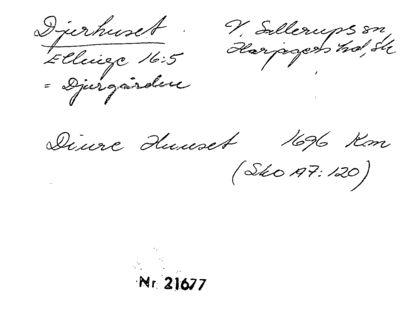 Djurhuset
V. Sallerups sn,
Harjagers hd, Sk
Ellinge 16:5
= Djurgården
Diure Huuset 1696 Km
(Sko A7: 120)
Nr 21677